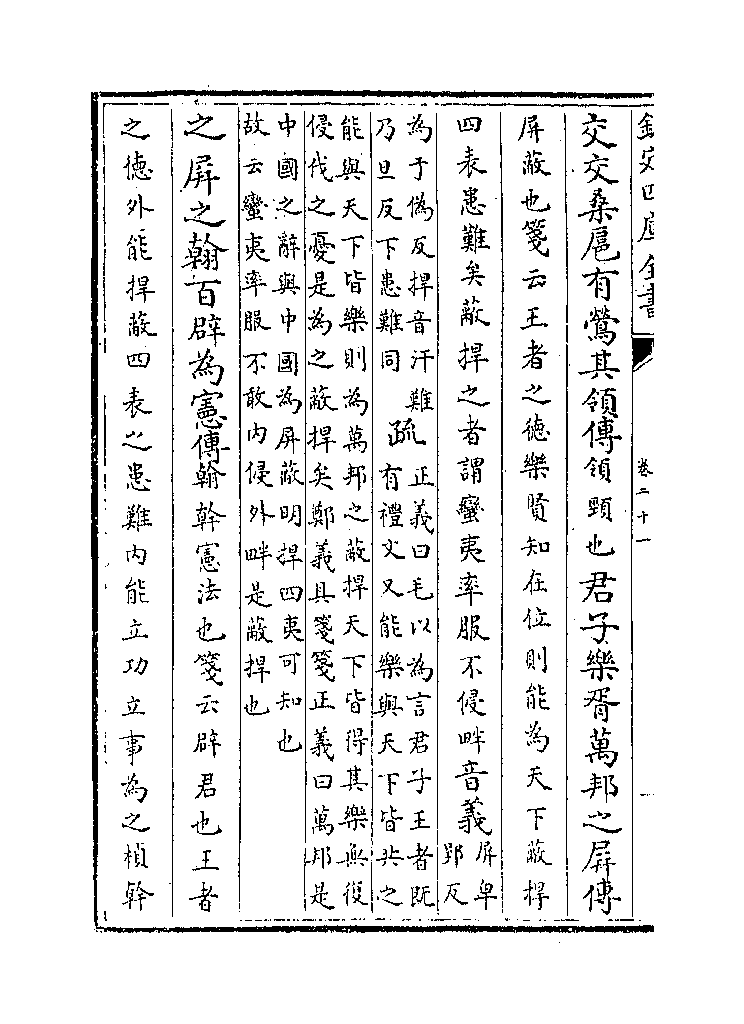 欽定四庫全書
卷二十一
交交桑扈有鶯其領傳領頸也君子樂胥萬邦之屏傳
屏蔽也箋云王者之徳樂賢知在位則能為天下蔽捍
四表患難矣蔽捍之者謂蠻夷率服不侵畔音義屏卑
郢反
為于偽反捍音汗難
乃旦反下患難同疏正義曰毛以為言君子王者既
有禮文又能樂與天下皆共之
能與天下皆樂則為萬邦之蔽捍天下皆得其樂無復
侵伐之憂是為之蔽捍矣鄭義具箋箋正義曰萬邦是
中國之辭與中國為屏蔽明捍四夷可知也
故云蠻夷率服不敢内侵外畔是蔽捍也
之屏之翰百辟為憲傳翰幹憲法也箋云辟君也王者
之徳外能捍蔽四表之患難内能立功立事為之楨幹